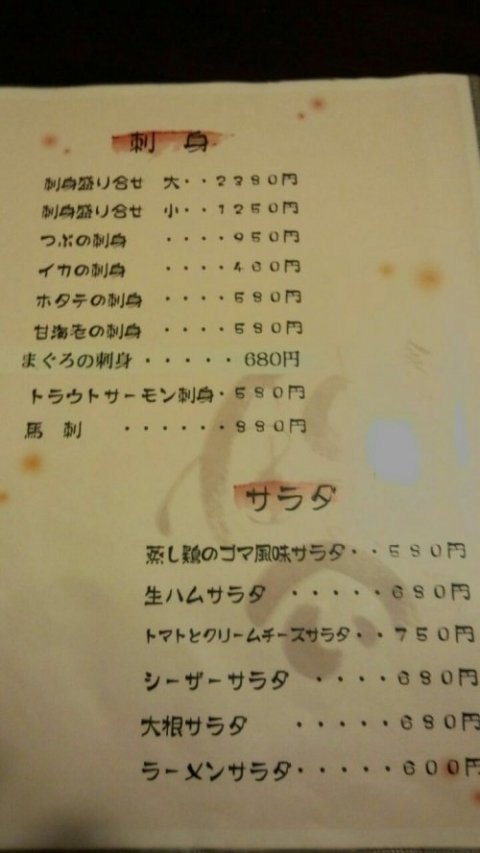 刺身
刺身盛り合せ 大・・2380円
刺身盛り合せ 小・・1250円
つぶの刺身 ・・・・950円
イカの刺身 ・・・・460円
ホタテの刺身 ・・・・580円
甘海老の刺身 ・・・・580円
まぐろの刺身・・・・・680円
トラウトサーモン刺身・580円
馬刺 ・・・・・・880円
サラダ
蒸し鶏のゴマ風味サラダ・・580円
生ハムサラダ ・・・・・680円
トマトとクリームチーズサラダ・・750円
シーザーサラダ ・・・・680円
大根サラダ ・・・・・680円
ラーメンサラダ・・・・・600円